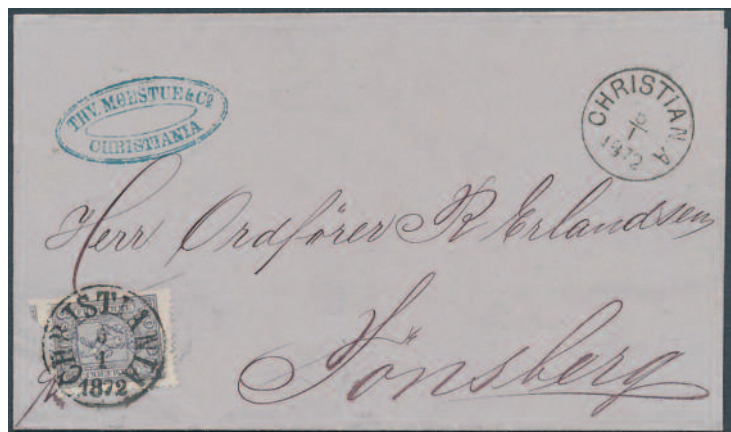 THV. MOESTUE & Co
CHRISTIANIA
CHRISTIANIA
6
1
1872
Herr Ordfører R Erlandsen
Tönsberg
CHRISTIANIA
6
1
1872